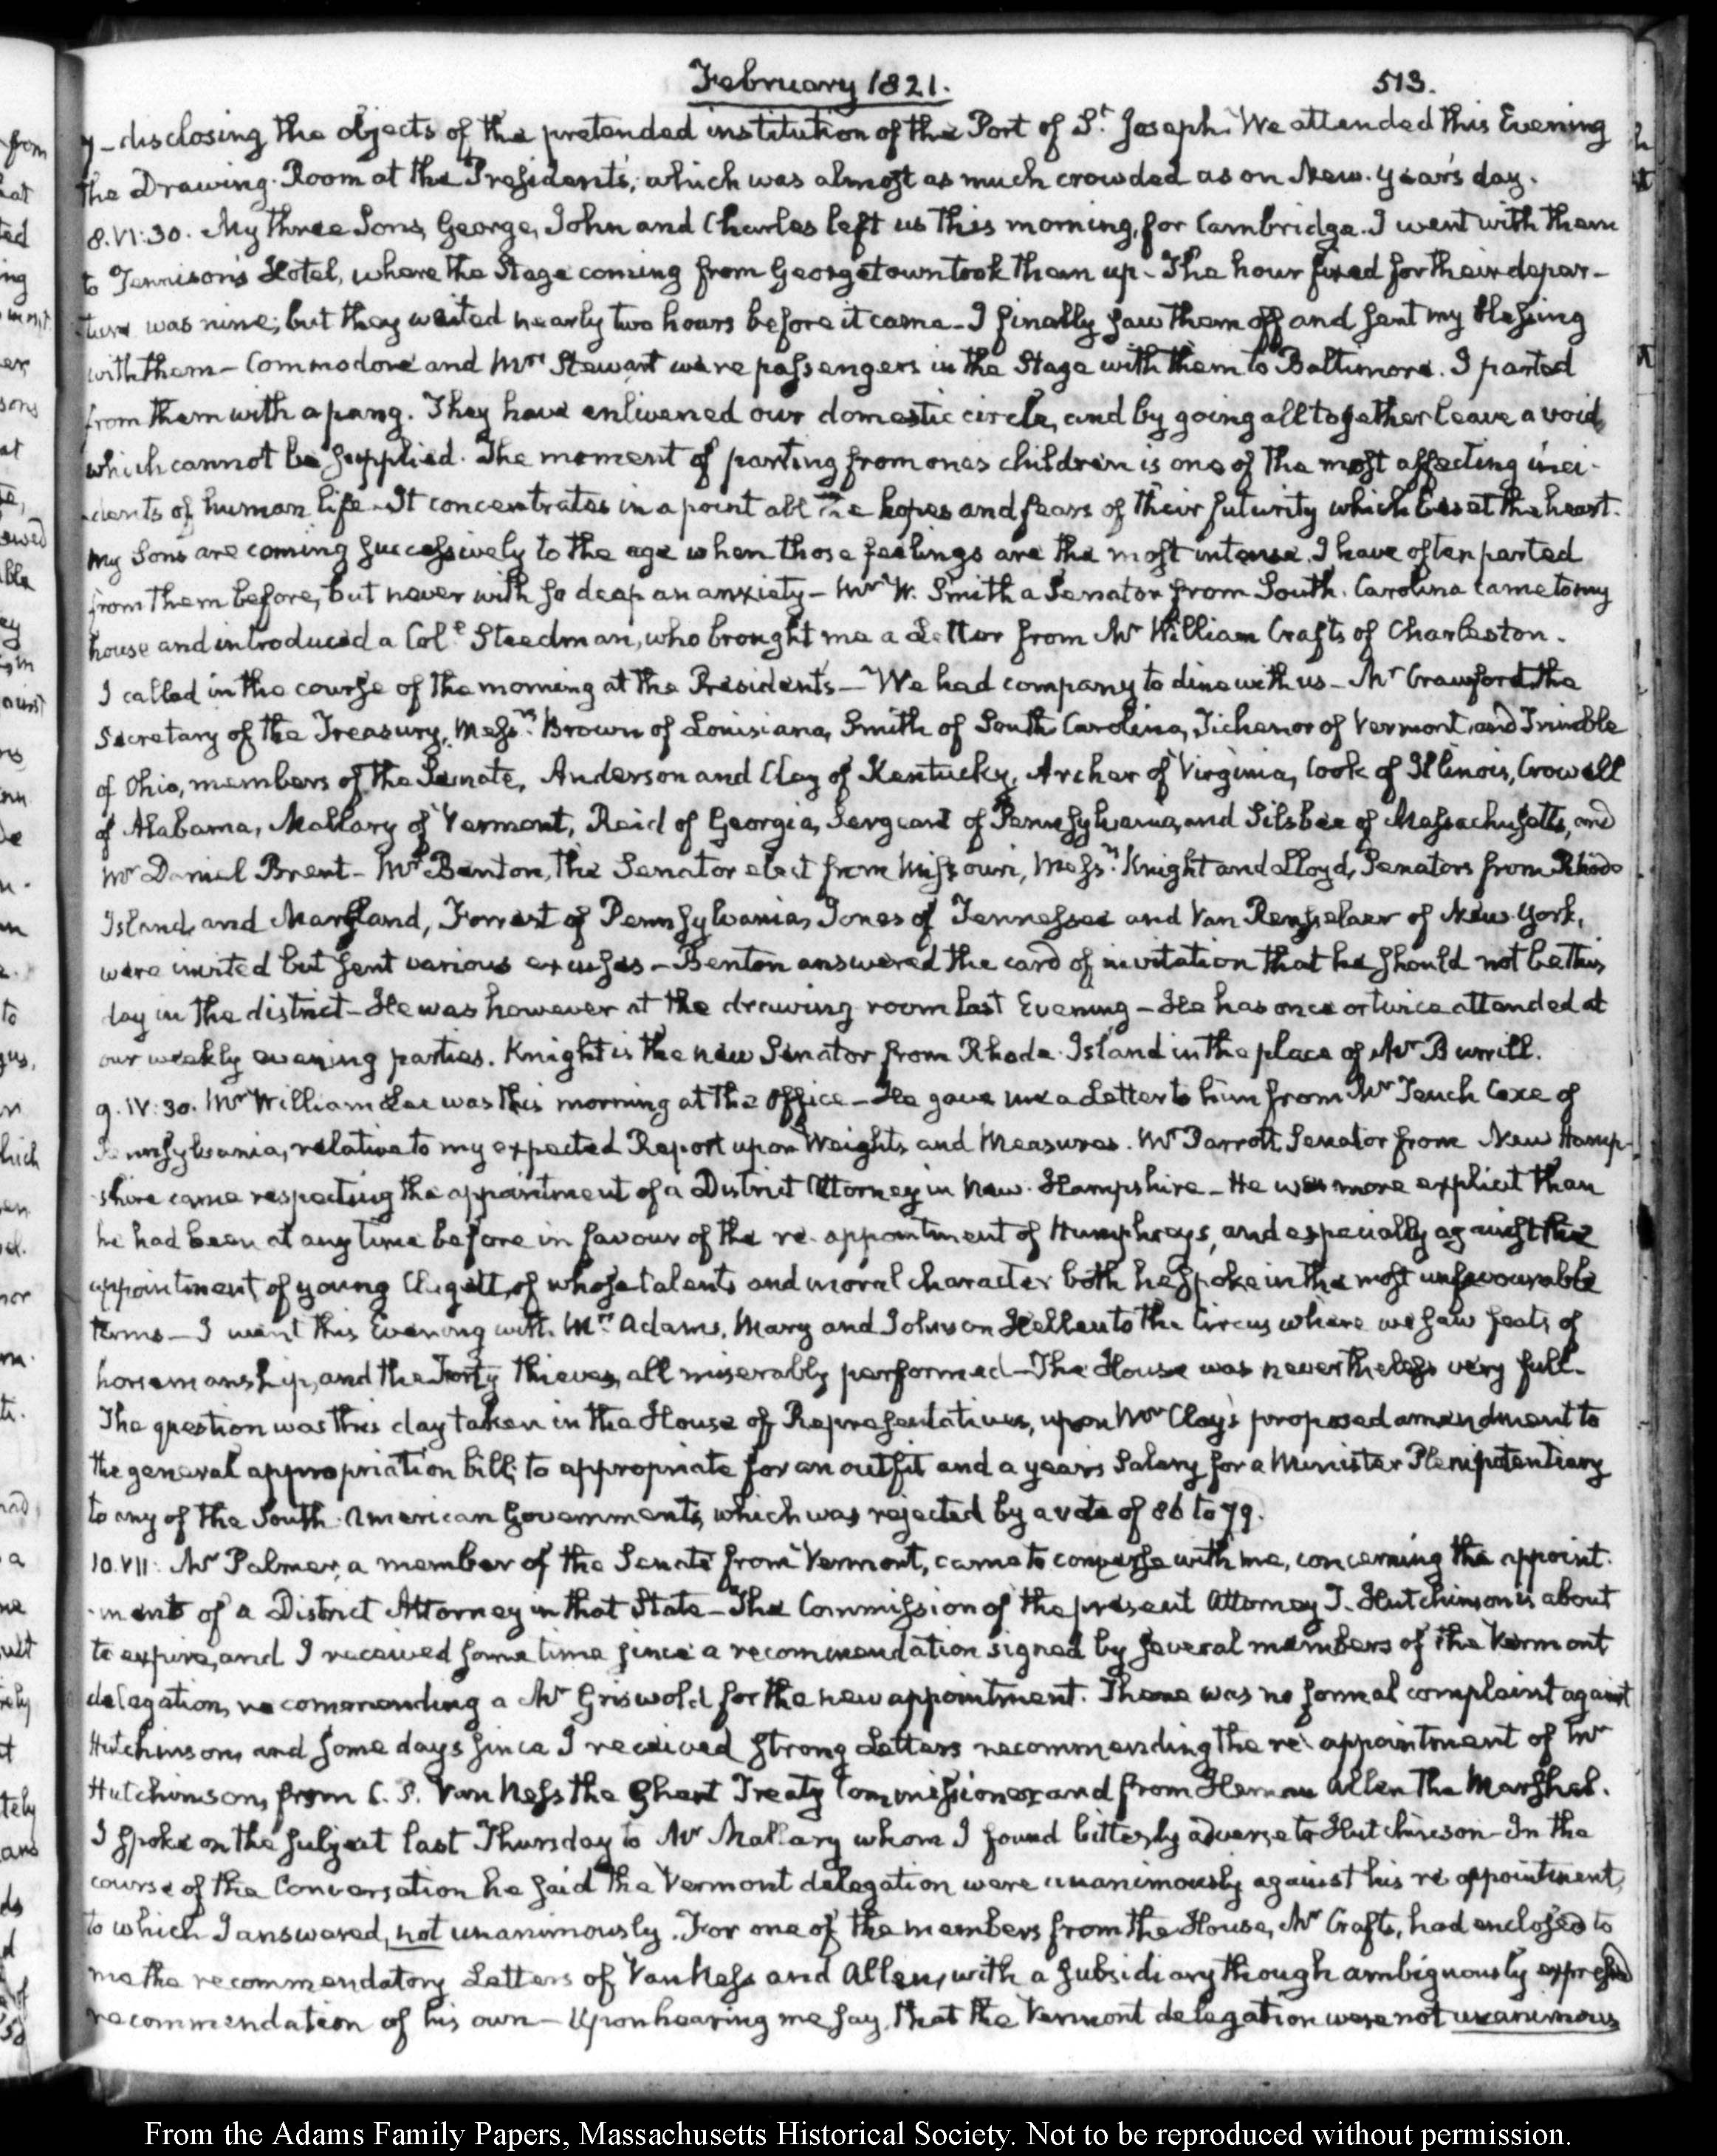 February 1821.
513.
7 – disclosing the objects of the pretended institution of the Port of St. Joseph. We attended this Evening
the Drawing-Room at the President's, which was almost as much crowded as on New-year's day.
8. VI:30. My three Sons, George, John and Charles left us this morning, for Cambridge. I went with them
to Tennison's Hotel, where the Stage coming from Georgetown took them up – The hour fixed for their depar-
-ture was nine; but they waited nearly two hours before it came – I finally saw them off and sent my blessing
with them – Commodore and Mrs Stewart were passengers in the Stage with them to Baltimore. I parted
from them with a pang. They have enlivened our domestic circle, and by going all together leave a void,
which cannot be supplied. The moment of parting from ones children is one of the most affecting inci-
-dents of human life – It concentrates in a point all the hopes and fears of their futurity which beset the heart.
My Sons are coming successively to the age when those feelings are the most intense. I have often parted
from them before, but never with so deep an anxiety – Mr W. Smith a Senator from South-Carolina came to my
house and introduced a Coll Steedman, who brought me a Letter from Mr William Crafts of Charleston.
I called in the course of the morning at the President's – We had company to dine with us – Mr Crawford the
Secretary of the Treasury, Messrs Brown of Louisiana, Smith of South Carolina, Tichenor of Vermont, and Trimble
of Ohio, members of the Senate, Anderson and Clay of Kentucky, Archer of Virginia, Cook of Illinois, Crowell
of Alabama, Mallary of Vermont, Reid of Georgia, Sergeant of Pennsylvania, and Silsbee of Massachusetts, and
Mr Daniel Brent – Mr Benton, the Senator elect from Missouri, Messrs Knight and Lloyd, Senators from Rhode
Island, and Maryland, Forrest of Pennsylvania, Jones of Tennessee and Van Rensselaer of New-York,
were invited but sent various excuses – Benton answered the card of invitation that he should not be this
day in the district – He was however at the drawing room last Evening – He has once or twice attended at
our weekly evening parties. Knight is the new Senator from Rhode-Island in the place of Mr Burrill.
9. IV:30. Mr William Lee was this morning at the Office – He gave me a Letter to him from Mr Tench Coxe of
Pennsylvania, relative to my expected Report upon Weights and Measures. Mr Parrott, Senator from New Hamp-
-shire came respecting the appointment of a District Attorney in New-Hampshire – He was more explicit than
he had been at any time before in favour of the re-appointment of Humphreys, and especially against the
appointment of young Clagett, of whose talents and moral character both he spoke in the most unfavourable
terms – I went this Evening with Mrs Adams, Mary and Johnson Hellen to the Circus where we saw feats of
horsemanship, and the Forty thieves, all miserably performed – The House was nevertheless very full.
The question was this day taken in the House of Representatives, upon Mr Clay's proposed amendment to
the general appropriation bill, to appropriate for an outfit and a years Salary for a Minister Plenipotentiary
to any of the South-American Governments, which was rejected by a vote of 86 to 79.
10. VII: Mr Palmer, a member of the Senate from Vermont, came to converse with me, concerning the appoint-
-ment of a District Attorney in that State – The Commission of the present Attorney T. Hutchinson is about
to expire, and I received some time since a recommendation signed by several members of the Vermont
delegation, recommending a Mr Griswold for the new appointment. There was no formal complaint against
Hutchinson, and some days since I received strong Letters recommending the re-appointment of Mr
Hutchinson, from C. P. Van Ness the Ghent Treaty Commissioner and from Heman Allen the Marshal.
I spoke on the subject last Thursday to Mr Mallary whom I found bitterly adverse to Hutchinson – In the
course of the Conversation he said the Vermont delegation were unanimously against his re-appointment,
to which I answered, not unanimously. For one of the members from the House, Mr Crafts, had enclosed to
me the recommendatory Letters of Van Ness and Allen, with a subsidiary though ambiguously expressed
recommendation of his own – Upon hearing me say, that the Vermont delegation were not unanimous
From the Adams Family Papers, Massachusetts Historical Society. Not to be reproduced without permission.